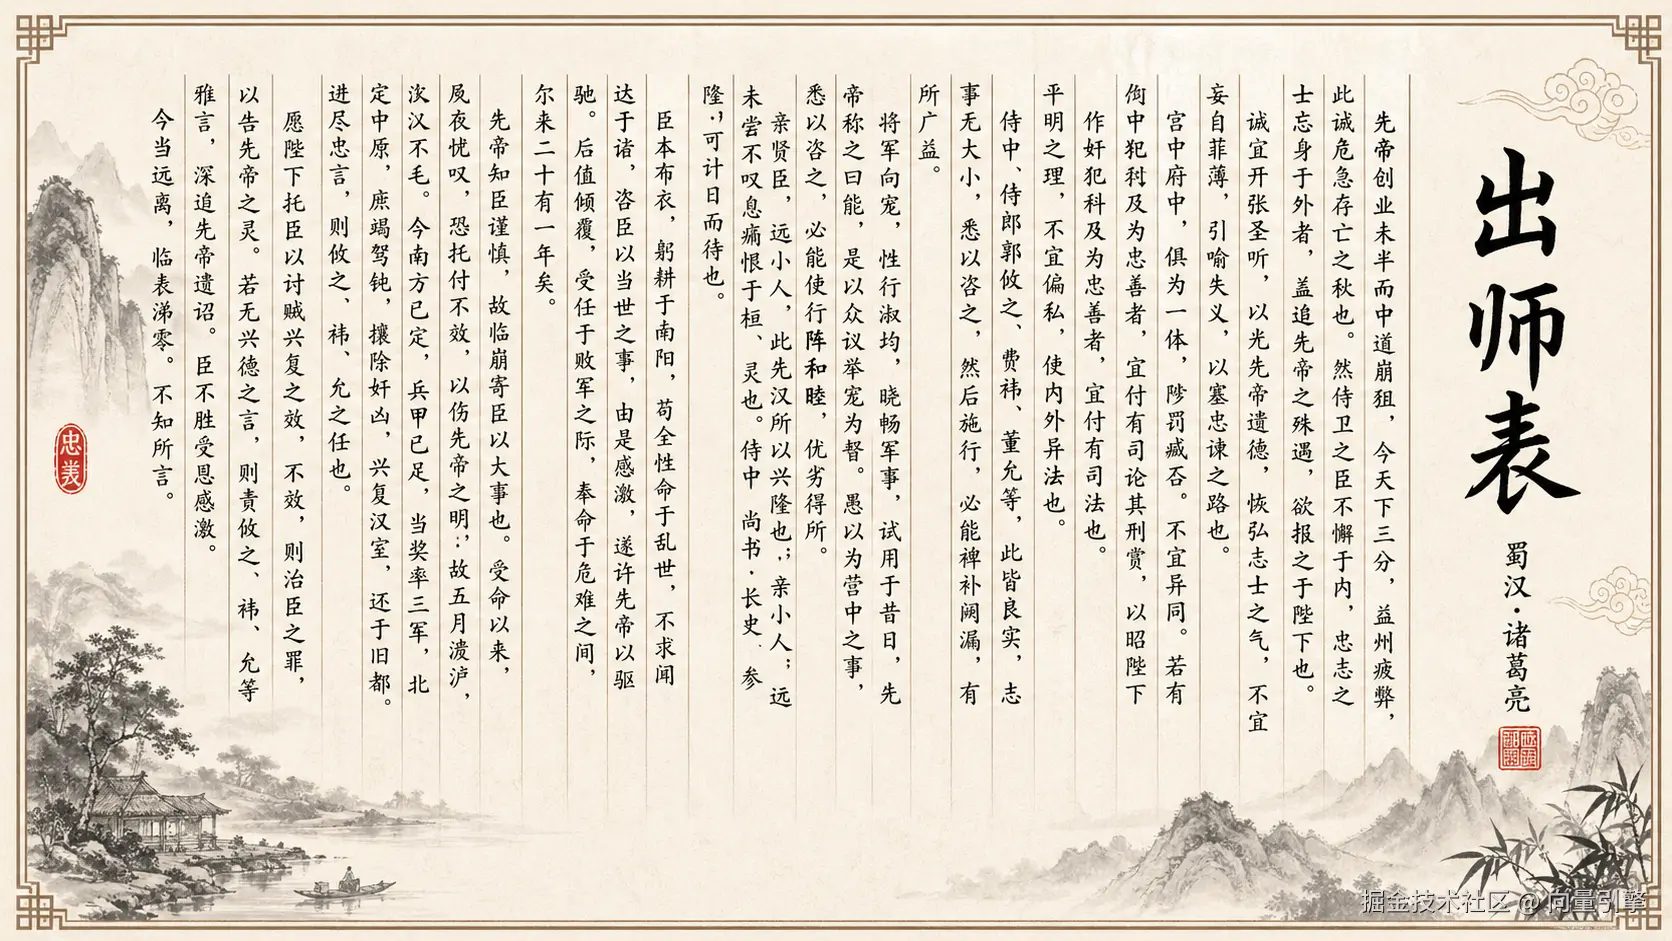 出师表
蜀汉·诸葛亮
先帝创业未半而中道崩殂，今天下三分，益州疲弊，
此诚危急存亡之秋也。然侍卫之臣不懈于内，忠志之
士忘身于外者，盖追先帝之殊遇，欲报之于陛下也。
诚宜开张圣听，以光先帝遗德，恢弘志士之气，不宜
妄自菲薄，引喻失义，以塞忠谏之路也。
宫中府中，俱为一体，陟罚臧否。不宜异同。若有
中犯科及为忠善者，宜付有司论其刑赏，以昭陛下
作奸犯科及为忠善者，宜付有司法也。
平明之理，不宜偏私，使内外异法也。
侍中、侍郎郭攸之、费祎、董允等，此皆良实，志
事无大小，悉以咨之，然后施行，必能裨补阙漏，有
所广益。
将军向宠，性行淑均，晓畅军事，试用于昔日，先
帝称之曰能，是以众议举宠为督。愚以为营中之事，
悉以咨之，必能使行阵和睦，优劣得所。
亲贤臣，远小人，此先汉所以兴隆也；亲小人；远
未尝不叹息痛恨于桓、灵也。侍中 尚书·长史、参
隆，可计日而待也。
臣本布衣，躬耕于南阳，苟全性命于乱世，不求闻
达于诸，咨臣以当世之事，由是感激，遂许先帝以驱
驰。后值倾覆，受任于败军之际，奉命于危难之间，
尔来二十有一年矣。
先帝知臣谨慎，故临崩寄臣以大事也。受命以来，
夙夜忧叹，恐托付不效，以伤先帝之明；故五月渡泸，
汉不毛。今南方已定，兵甲已足，当奖率三军，北
定中原，庶竭驽钝，攘除奸凶，兴复汉室，还于旧都。
进尽忠言，则攸之、祎、允之任也。
愿陛下托臣以讨贼兴复之效，不效，则治臣之罪，
以告先帝之灵。若无兴德之言，则责攸之、祎、允等
雅言，深追先帝遗诏。臣不胜受恩感激。
今当远离，临表涕零。不知所言。
忠义
掘金技术社区 @ 尚量引擎